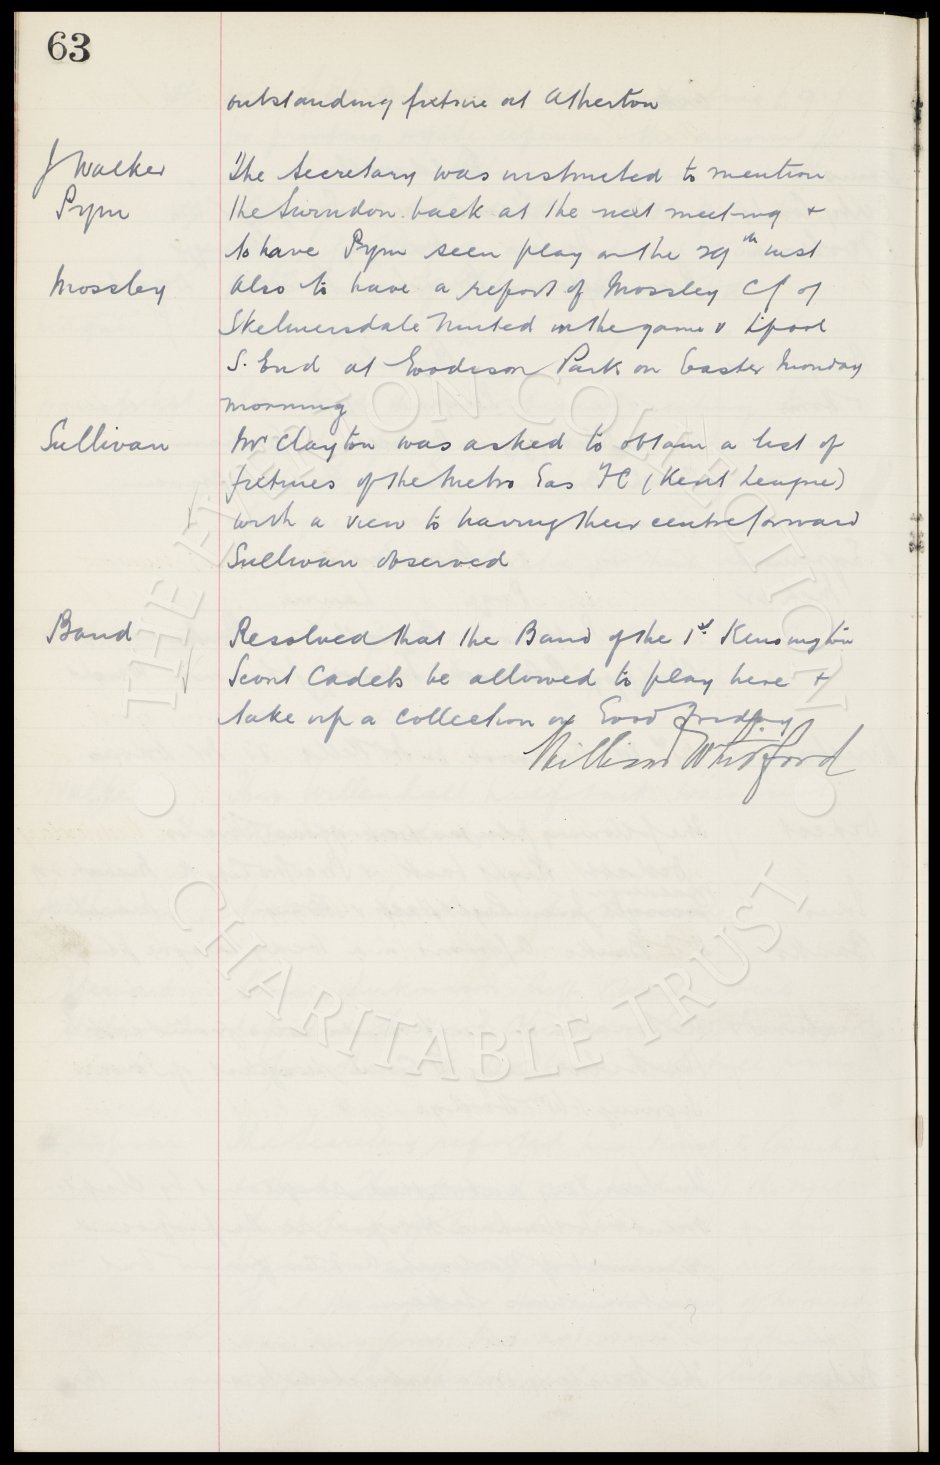 63
outstanding fixture at Atherton
J Walker The Secretary was instructed to mention
Pym the Swindon back at the next meeting +
to have Pym seen play on the 29th inst
Mossley Also to have a report of Mossley CF of
Skelmersdale United in the game v L'pool
S. End at Goodison Park on Easter Monday
morning
Sullivan Mr Clayton was asked to obtain a list of
fixtures of the Metro Gas FC (Kent League)
with a view to having their centreforward
Sullivan observed
Band Resolved that the Band of the 1st Kensington
Scout Cadets be allowed to play here +
take up a collection on Good Friday.
William Whitford
THE EVERTON COLLECTION
CHARITABLE TRUST